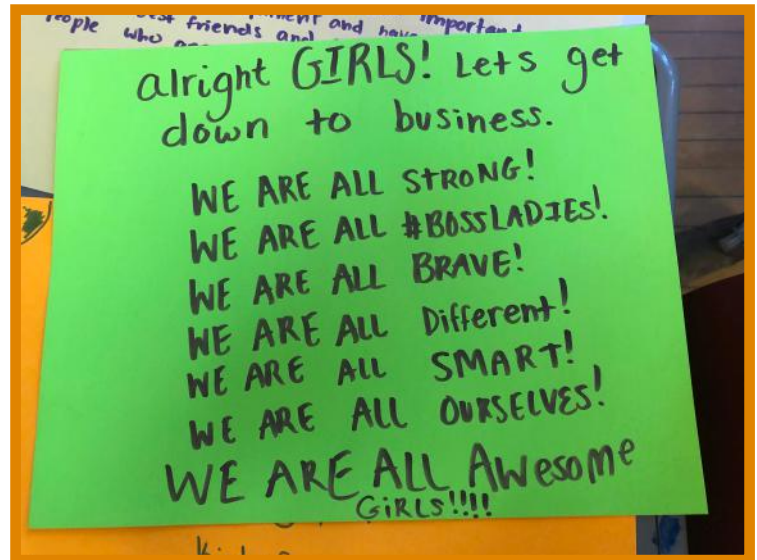 people who
best friends and
and have
important
alright GIRLS! Lets get
down to business.
WE ARE ALL STRONG!
WE ARE ALL #BOSSLADIES!
WE ARE ALL BRAVE!
WE ARE ALL Different!
WE ARE ALL SMART!
WE ARE ALL OURSELVES!
WE ARE ALL AWesome
GiRLS!!!!